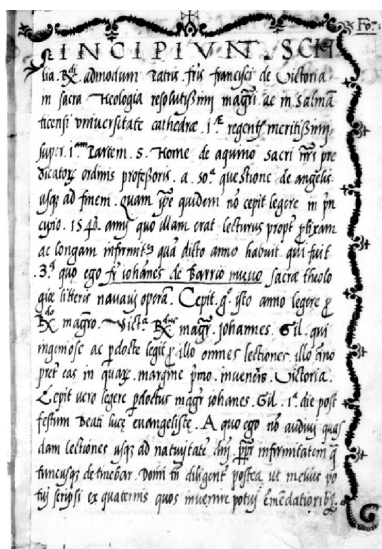 INCIPIVNT. SCH
lia. Rdi. admodum Patris. fris francisci de Victoria.
in sacra Theologia resolutissimi magri. ac in Salmā
ticensi vniuersitate cathedræ .1ᵉ. regentis meritissimi
super .1ᵃᵐ. Partem. S. Thome de aquino sacri nrī pre
dicatorū ordinis professoris. a .50ᵃ. questione de angelis
usqꝫ ad finem. quam ipse quidem nō cepit legere in prin
cipio .1540. anni quo illam erat lecturus propter prolixam
ac longam infirmitatē quā dicto anno habuit. qui fuit
3ˢ. quo ego fr. iohanes de Barrio nuevo sacræ theolo
giæ litteris nauaui operā. Cepit gº. isto anno legere pro
Rdo. magro. Victa. Rdus. magr. johannes. Gil. qui
ingeniose ac perdocte legit pro illo omnes lectiones illo anno
preter eas in quarum margine primo. inuenies. Victoria.
Cepit vero legere perdoctus magr iohanes. Gil. 1ᵃ. die post
festum Beati luce euangeliste. A quo ego nō audiui quas
dam lectiones usqꝫ ad natiuitatē dnī. propter infirmitatem qua
tunc usqꝫ detinebar. Domi tn̄ diligenter postea, ut melius po
tui scripsi ex quaternis quos inuenire potui emēdatioribꝫ.
G